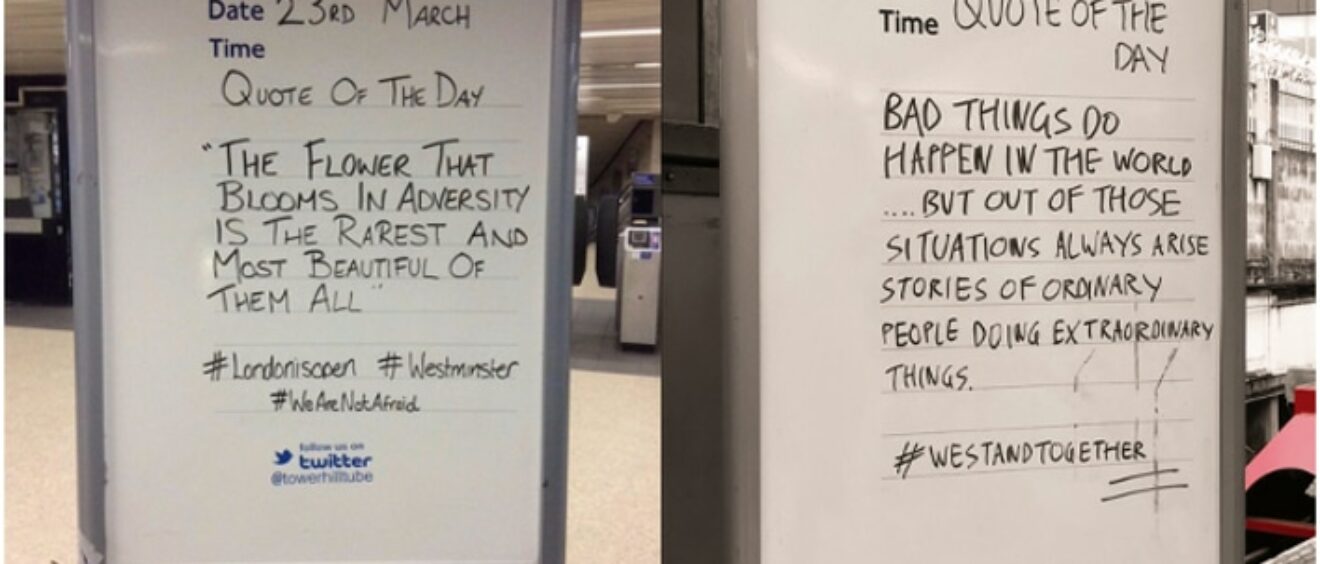 Date 23RD MARCH
Time
QUOTE OF THE DAY
"THE FLOWER THAT
BLOOMS IN ADVERSITY
IS THE RAREST AND
MOST BEAUTIFUL OF
THEM ALL"
#Londonisopen #Westminster
#WeAreNotAfraid
follow us on
twitter
@towerhilltube
Time QUOTE OF THE
DAY
BAD THINGS DO
HAPPEN IN THE WORLD
....BUT OUT OF THOSE
SITUATIONS ALWAYS ARISE
STORIES OF ORDINARY
PEOPLE DOING EXTRAORDINARY
THINGS.
#WESTANDTOGETHER